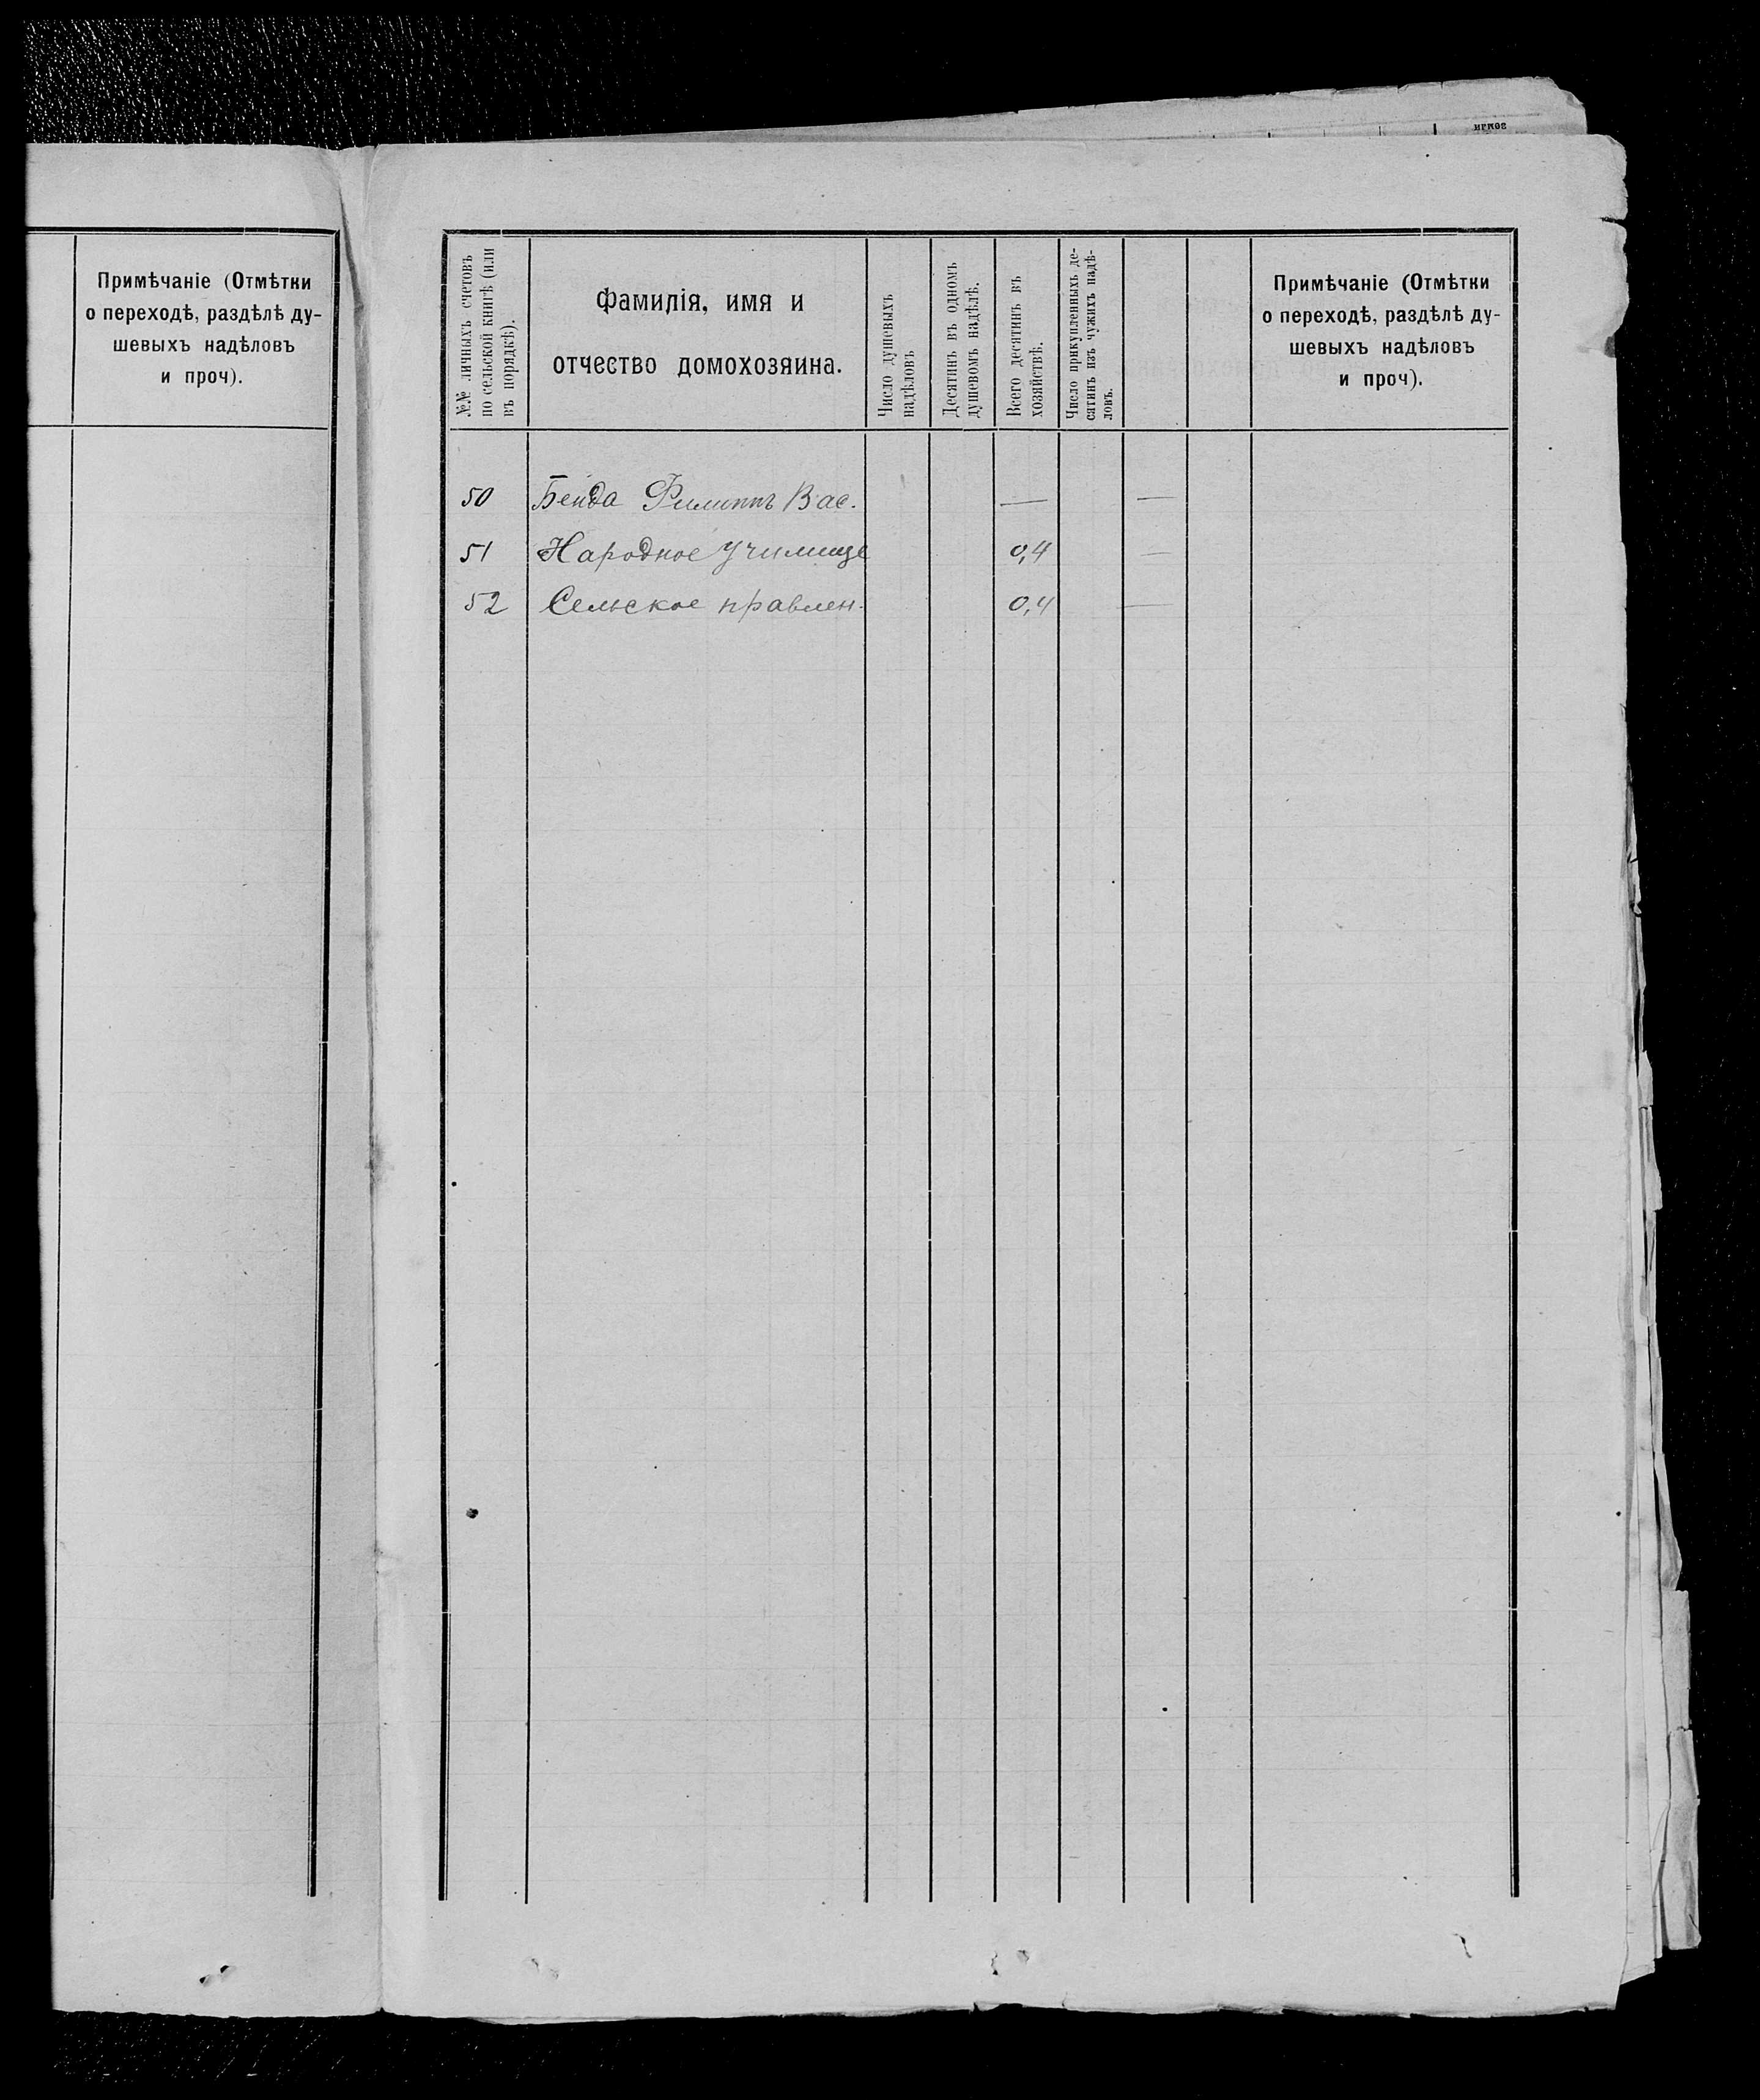 Примѣчаніе (Отмѣтки
о переходѣ, раздѣлѣ ду-
шевыхъ надѣловъ
и проч).
№№ личныхъ счетовъ
по сельской книгѣ (или
въ порядкѣ).
Фамилія, имя и
отчество домохозяина.
Число душевыхъ
надѣловъ
Десятинъ въ одномъ
душевомъ надѣлѣ.
Всего десятинъ въ
хозяйствѣ.
Число прикупленныхъ де-
сятинъ изъ чужихъ надѣ-
ловъ.
Примѣчаніе (Отмѣтки
о переходѣ, раздѣлѣ ду-
шевыхъ надѣловъ
и проч).
50 Бенда Филиппъ Вас. — —
51 Народное училище 0,4 —
52 Сельское правлен. 0,4 —